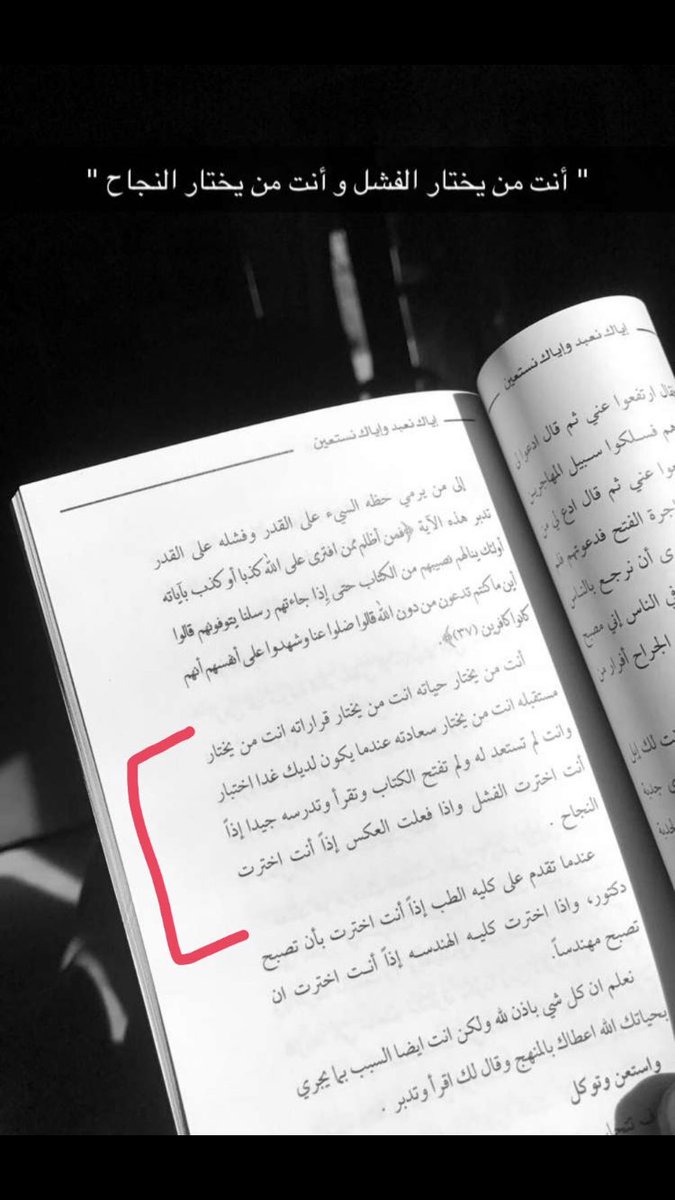 " أنت من يختار الفشل و أنت من يختار النجاح "
إياك نعبد وإياك نستعين
يقال ارتفعوا عني ثم قال ادعوا لي
هم فسلكوا سبيل المهاجرين
عني ثم قال ادع لي من
الفتح فدعوتهم فلم
أن نرجع بالناس
في الناس إني مصبح
الجراح أفرار من
لك إبل
جدبة
إياك نعبد وإياك نستعين
إلى من يرمي حظه السيء على القدر وفشله على القدر
تدبر هذه الآية ﴿فمن أظلم ممن افترى على الله كذبا أو كذب بآياته
أولئك ينالهم نصيبهم من الكتاب حتى إذا جاءتهم رسلنا يتوفونهم قالوا
أين ما كنتم تدعون من دون الله قالوا ضلوا عنا وشهدوا على أنفسهم أنهم
كانوا كافرين (٣٧)﴾.
أنت من يختار حياته انت من يختار قراراته انت من يختار
مستقبله انت من يختار سعادته عندما يكون لديك غدا اختبار
وانت لم تستعد له ولم تفتح الكتاب وتقرأ وتدرسه جيدا إذاً
أنت اخترت الفشل واذا فعلت العكس إذاً أنت اخترت
النجاح .
عندما تقدم على كليه الطب إذاً أنت اخترت بأن تصبح
دكتور، واذا اخترت كليه الهندسه إذاً أنت اخترت ان
تصبح مهندساً.
نعلم ان كل شي باذن لله ولكن انت ايضا السبب بما يجري
بحياتك الله اعطاك بالمنهج وقال لك اقرأ وتدبر .
واستعن وتوكل